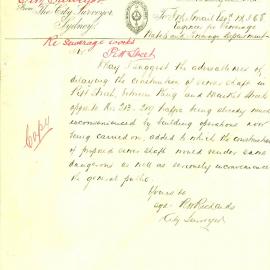 City Surveyor
From The City Surveyor
Sydney
To
Engineer for Sewerage
Water and Sewerage Department
Re Sewerage works
Pitt Street
Sir
May I suggest the advisableness of
delaying the construction of sewer shaft in
Pitt Street, between King and Market Streets
opposite No 213 being already much
inconvenienced by building operations now
being carried on, added to which the construction
of proposed sewer shaft would render same
dangerous as well as seriously inconvenience
the general public.
Copy
Yours &c
sgd. Richards
City Surveyor